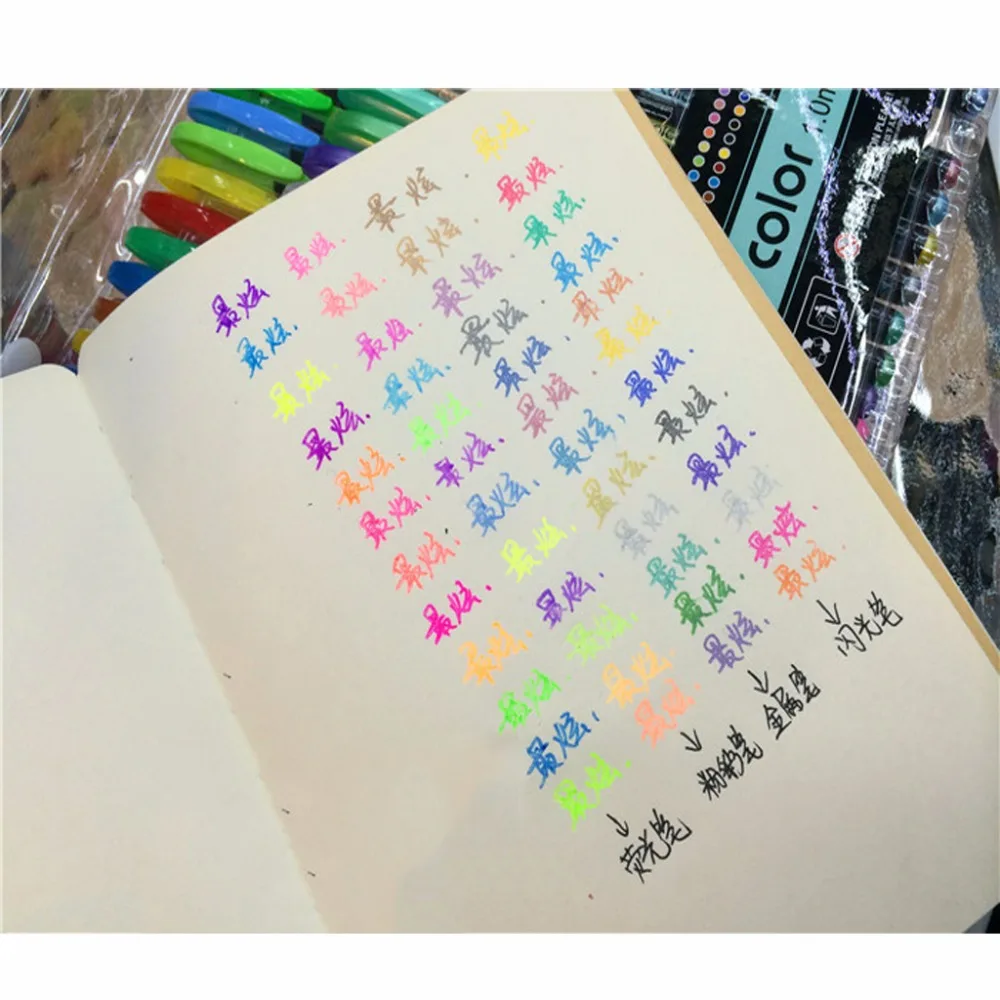 最炫 最炫. 最炫. 最炫.
最炫. 最炫. 最炫. 最炫.
最炫. 最炫. 最炫. 最炫.
最炫. 最炫. 最炫. 最炫.
最炫. 最炫. 最炫. 最炫.
最炫. 最炫. 最炫. 最炫.
最炫. 最炫. 最炫. 最炫.
最炫. 最炫. 最炫. 最炫.
最炫. 最炫. 最炫. 最炫.
最炫. 最炫. 最炫. 最炫.
最炫. 最炫. 最炫. 最炫.
最炫. 最炫. 最炫. 最炫.
荧光笔 粉彩笔 金属笔 闪光笔
color